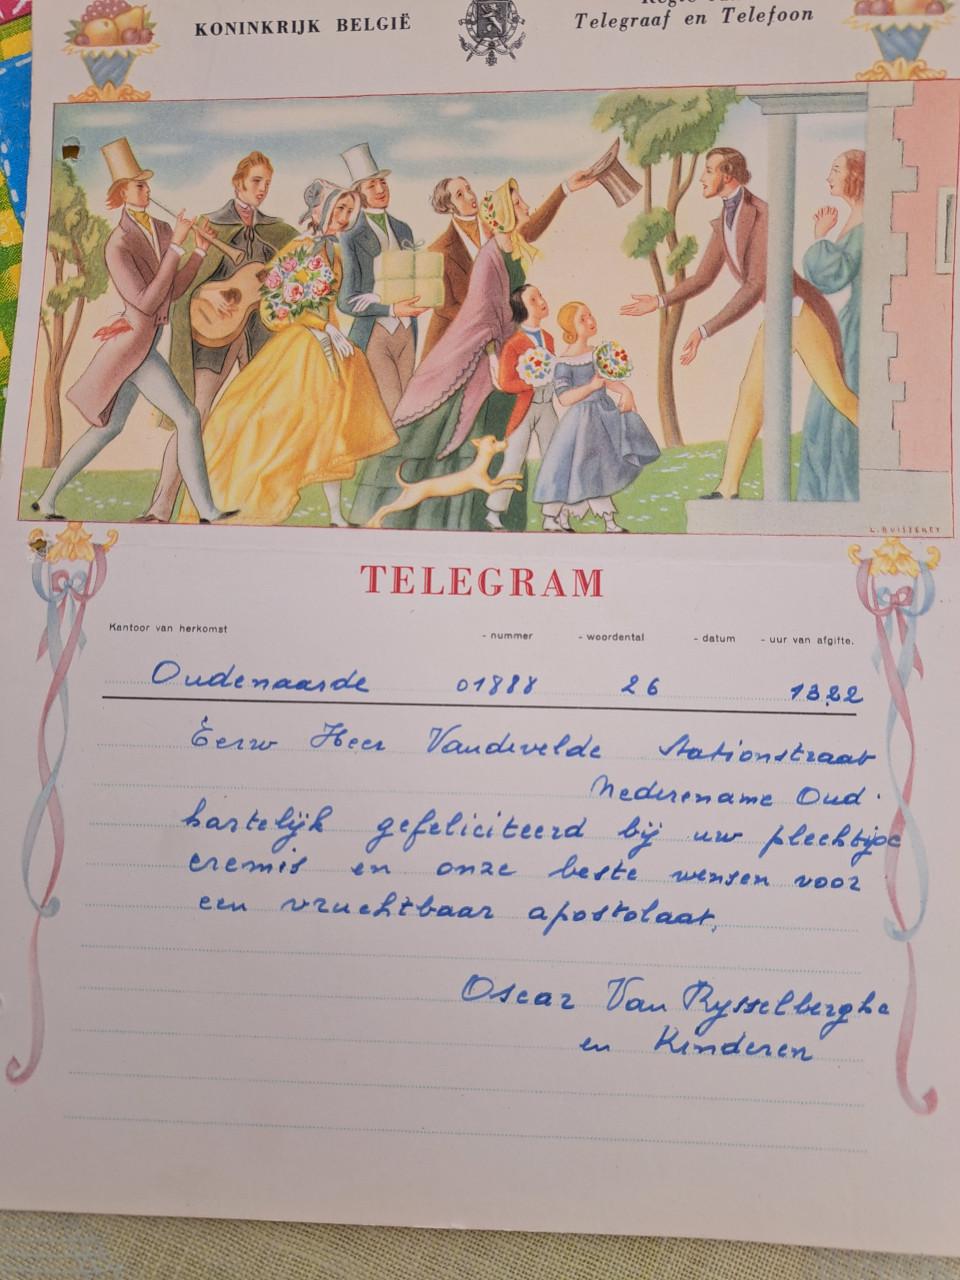 KONINKRIJK BELGIË
Telegraaf en Telefoon
L. BUISSERET
TELEGRAM
Kantoor van herkomst - nummer - woordental - datum - uur van afgifte.
Oudenaarde 01888 26 1322
Eerw Heer Vandevelde Stationstraat
Nederename Oud.
hartelijk gefeliciteerd bij uw plechtige
eremis en onze beste wensen voor
een vruchtbaar apostolaat,
Oscar Van Rysselberghe
en Kinderen